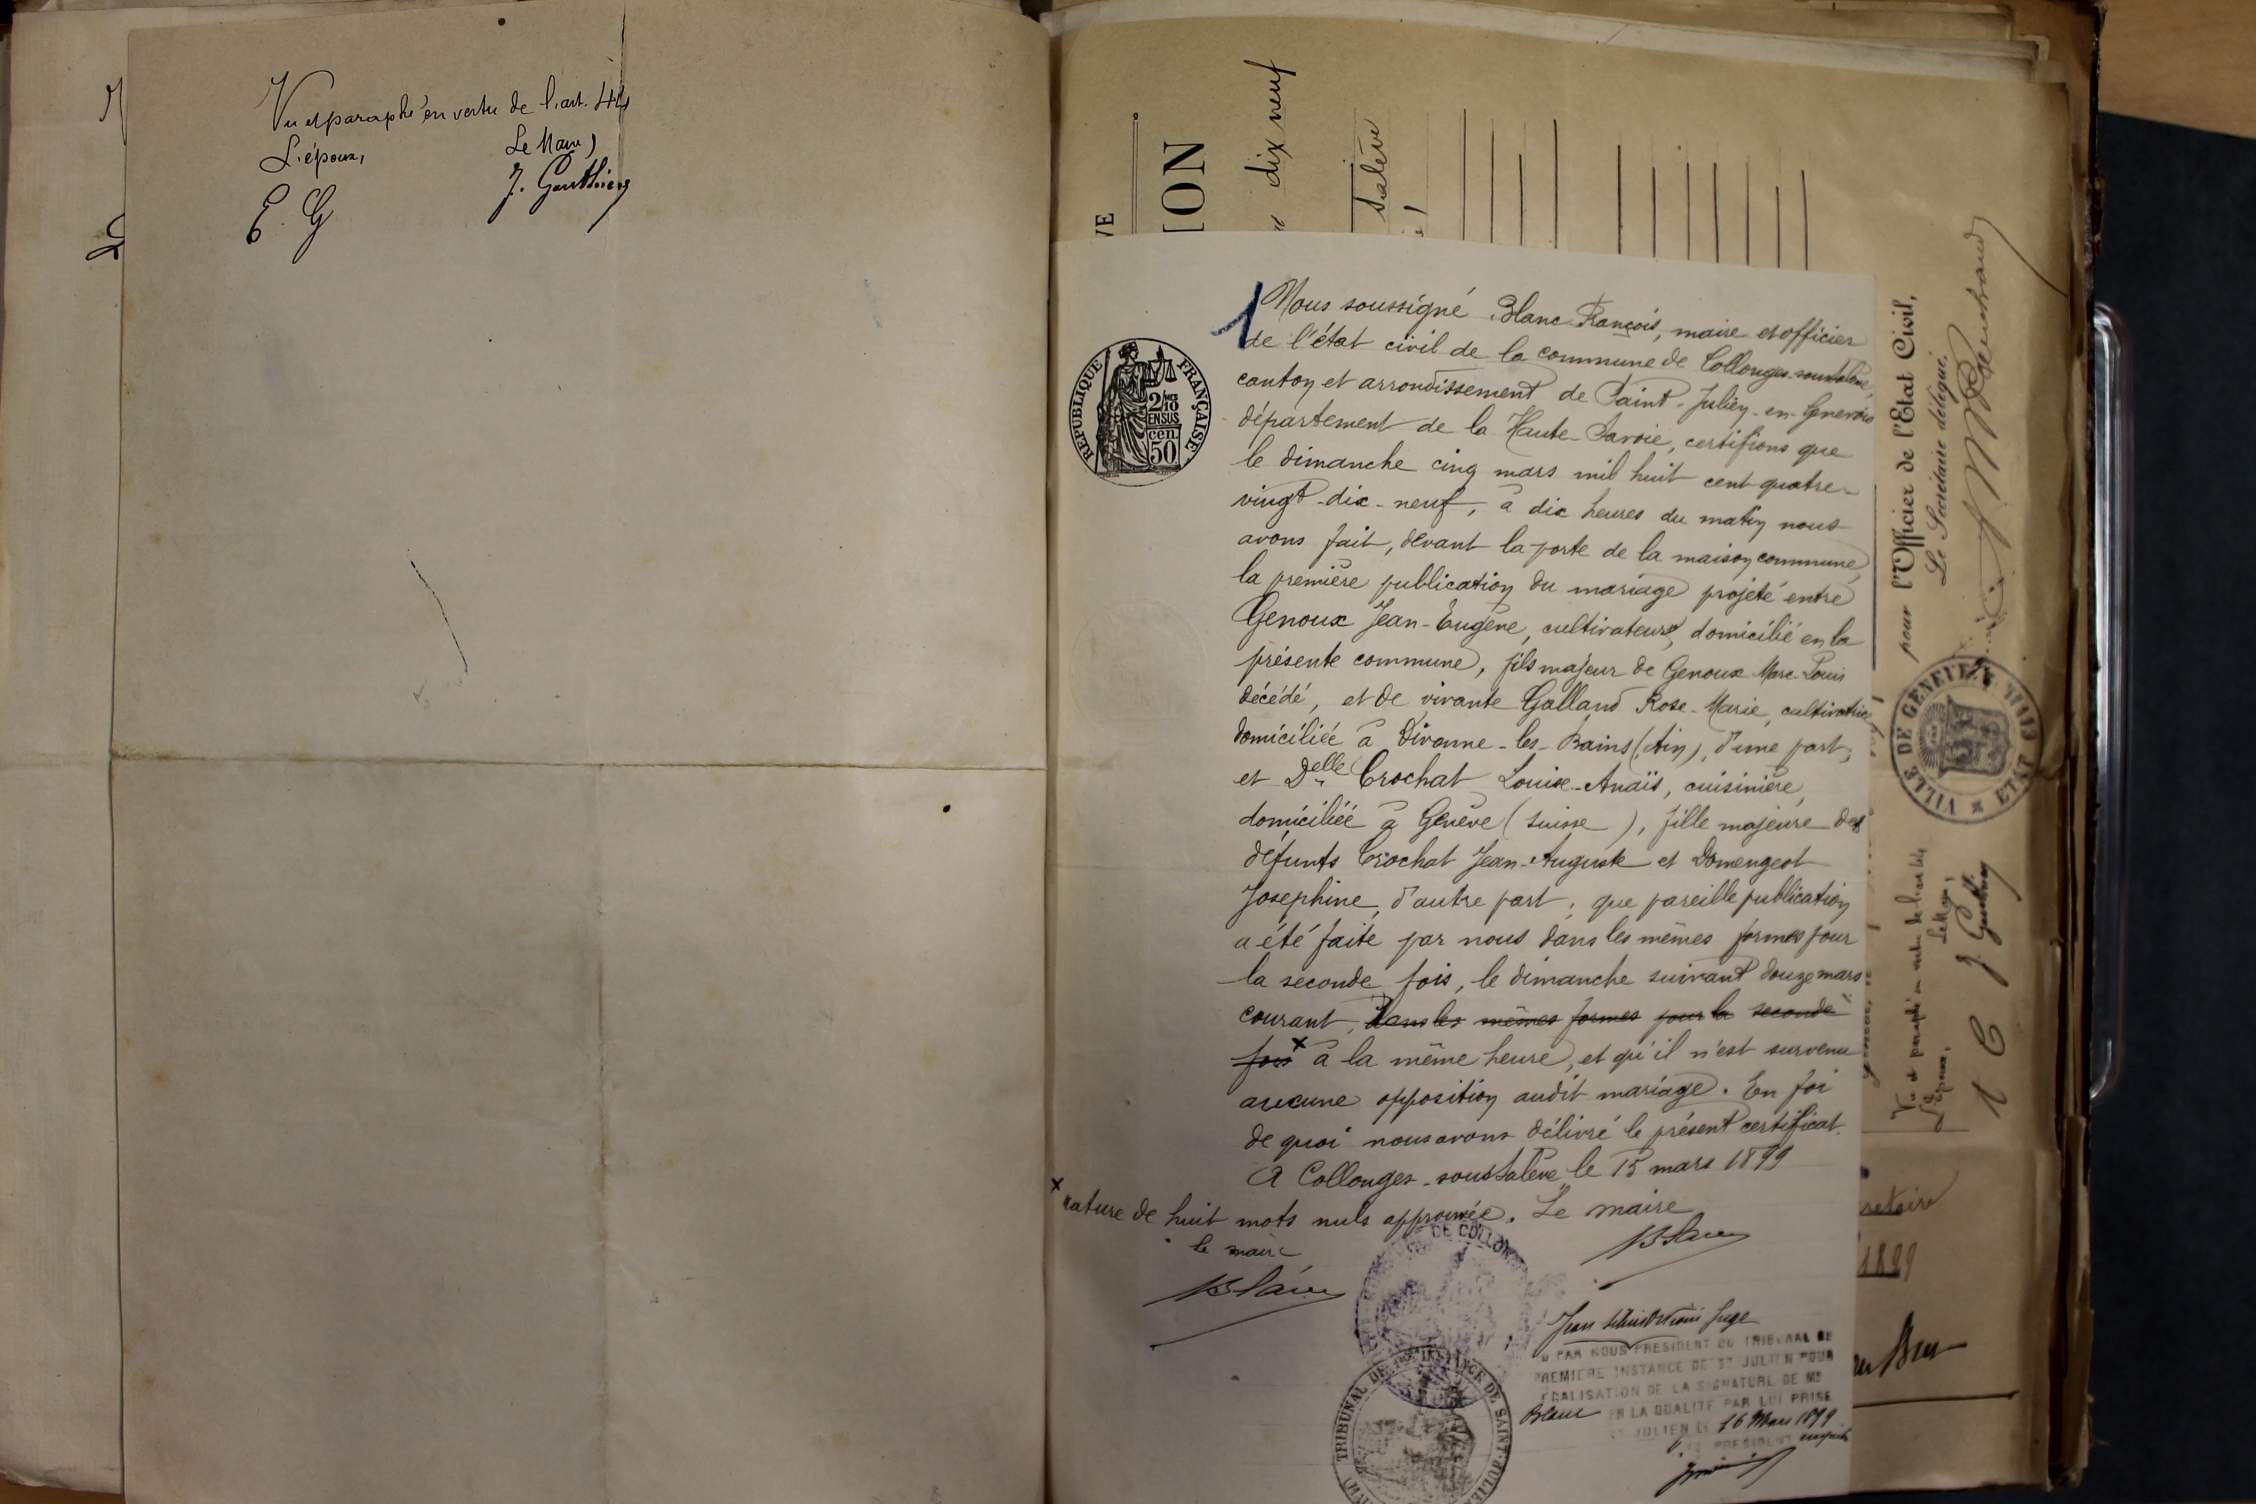 Vu et paraphé en vertu de l'art. 44
L'époux, Le Maire,
E. G J. Gauthier
VE
ION
dix neuf
Salève
1
Nous soussigné Blanc François, maire et officier
de l'état civil de la commune de Collonges-sous-Salève,
canton et arrondissement de Saint-Julien-en-Genevois
département de la Haute-Savoie, certifions que
le dimanche cinq mars mil huit cent quatre-
vingt-dix-neuf, à dix heures du matin nous
avons fait, devant la porte de la maison commune,
la première publication du mariage projeté entre
Genoux Jean-Eugène, cultivateur, domicilié en la
présente commune, fils majeur de Genoux Marc-Louis
décédé, et de vivante Galland Rose-Marie, cultivatrice
domiciliée à Divonne-les-Bains (Ain), d'une part;
et Delle Crochat Louise-Anaïs, cuisinière,
domiciliée à Genève (Suisse), fille majeure des
défunts Crochat Jean-Auguste et Domengeot
Josephine, d'autre part; que pareille publication
a été faite par nous dans les mêmes formes pour
la seconde fois, le dimanche suivant douze mars
courant, dans les mêmes formes pour la seconde
fois x à la même heure, et qu'il n'est survenu
aucune opposition audit mariage. En foi
de quoi nous avons délivré le présent certificat.
A Collonges-sous-Salève, le 15 mars 1899
x rature de huit mots nuls approuvée. Le maire
le maire
Blanc
Blanc
RÉPUBLIQUE FRANÇAISE
2/10 EN SUS
50 cen
DE COLLON
TRIBUNAL DE 1ère INSTANCE DE SAINT-JULIEN
Juge
U PAR NOUS PRESIDENT DU TRIBUNAL DE
PREMIERE INSTANCE DE ST JULIEN POUR
LEGALISATION DE LA SIGNATURE DE Mr
Blanc EN LA QUALITE PAR LUI PRISE
ST JULIEN LE 16 Mars 1899
LE PRESIDENT
pour l'Officier de l'Etat Civil,
Le Secrétaire délégué,
VILLE DE GENÈVE ETAT CIVIL
Vu et paraphé en vertu de l'art 44
L'Époux, Le Maire,
J. Gauthier
1899